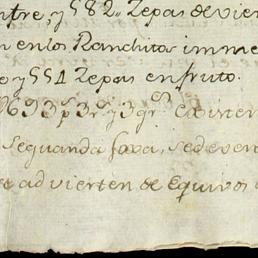 ntre, y 582. Zepas de vier
n en los Ranchitos imme
o y 551 Zepas en fruto.
693 p.s 3 r.s y 3 gr.s Existen
Segunda faxa, se deven
advierten de Equivos